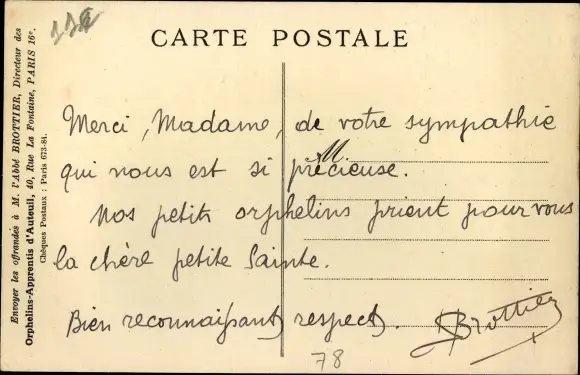 CARTE POSTALE
Envoyer les offrandes à M. l'Abbé BROTTIER, Directeur des
Orphelins-Apprentis d'Auteuil, 40, Rue La Fontaine, PARIS 16e.
Chèques Postaux : Paris 673-84.
Merci, Madame, de votre sympathie
qui nous est si précieuse.
M.
Nos petits orphelins prient pour vous
la chère petite Sainte.
Bien reconnaissants respects.
Brottier
78